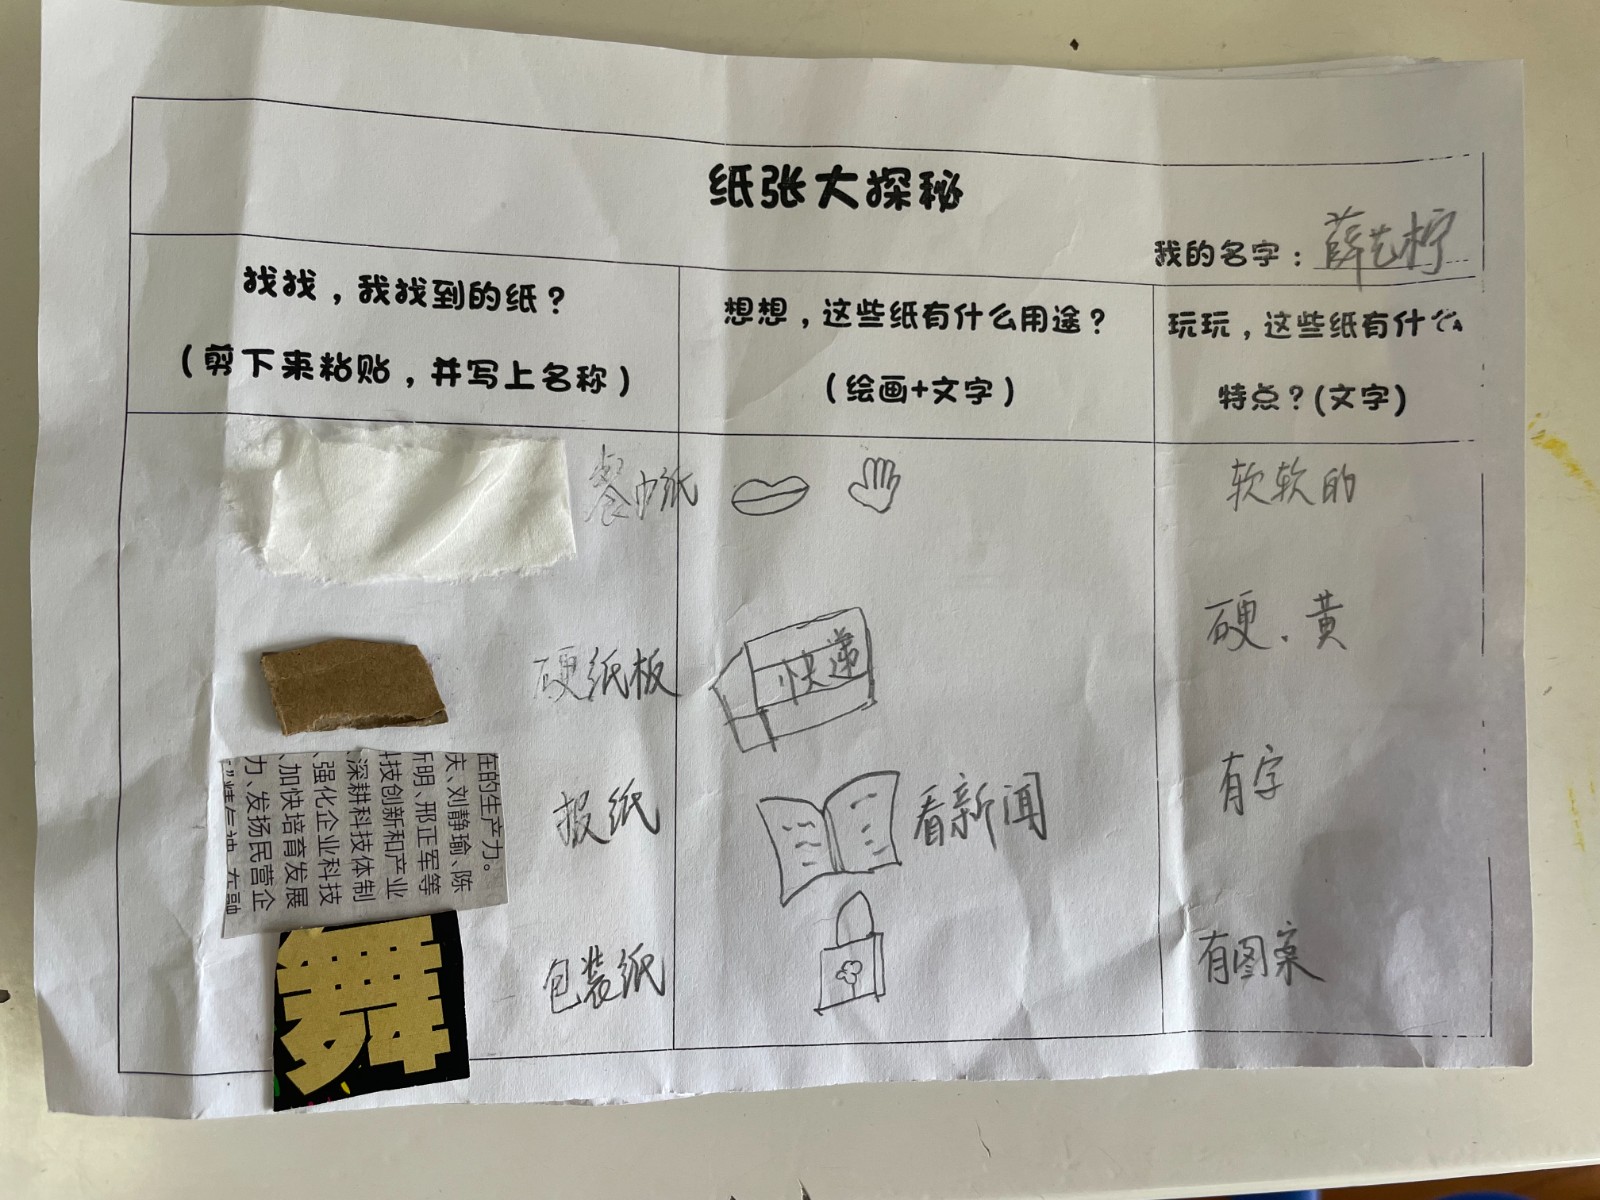 纸张大探秘
我的名字：薛艺柠
找找，我找到的纸？
（剪下来粘贴，并写上名称）
想想，这些纸有什么用途？
（绘画+文字）
玩玩，这些纸有什么
特点？(文字)
餐巾纸
软软的
硬纸板
快递
硬、黄
在的生产力。
夫、刘静瑜、陈
明、邢正军等
技创新和产业
深耕科技体制
、强化企业科技
、加快培育发展
力、发扬民营企
报纸
看新闻
有字
舞
包装纸
有图案